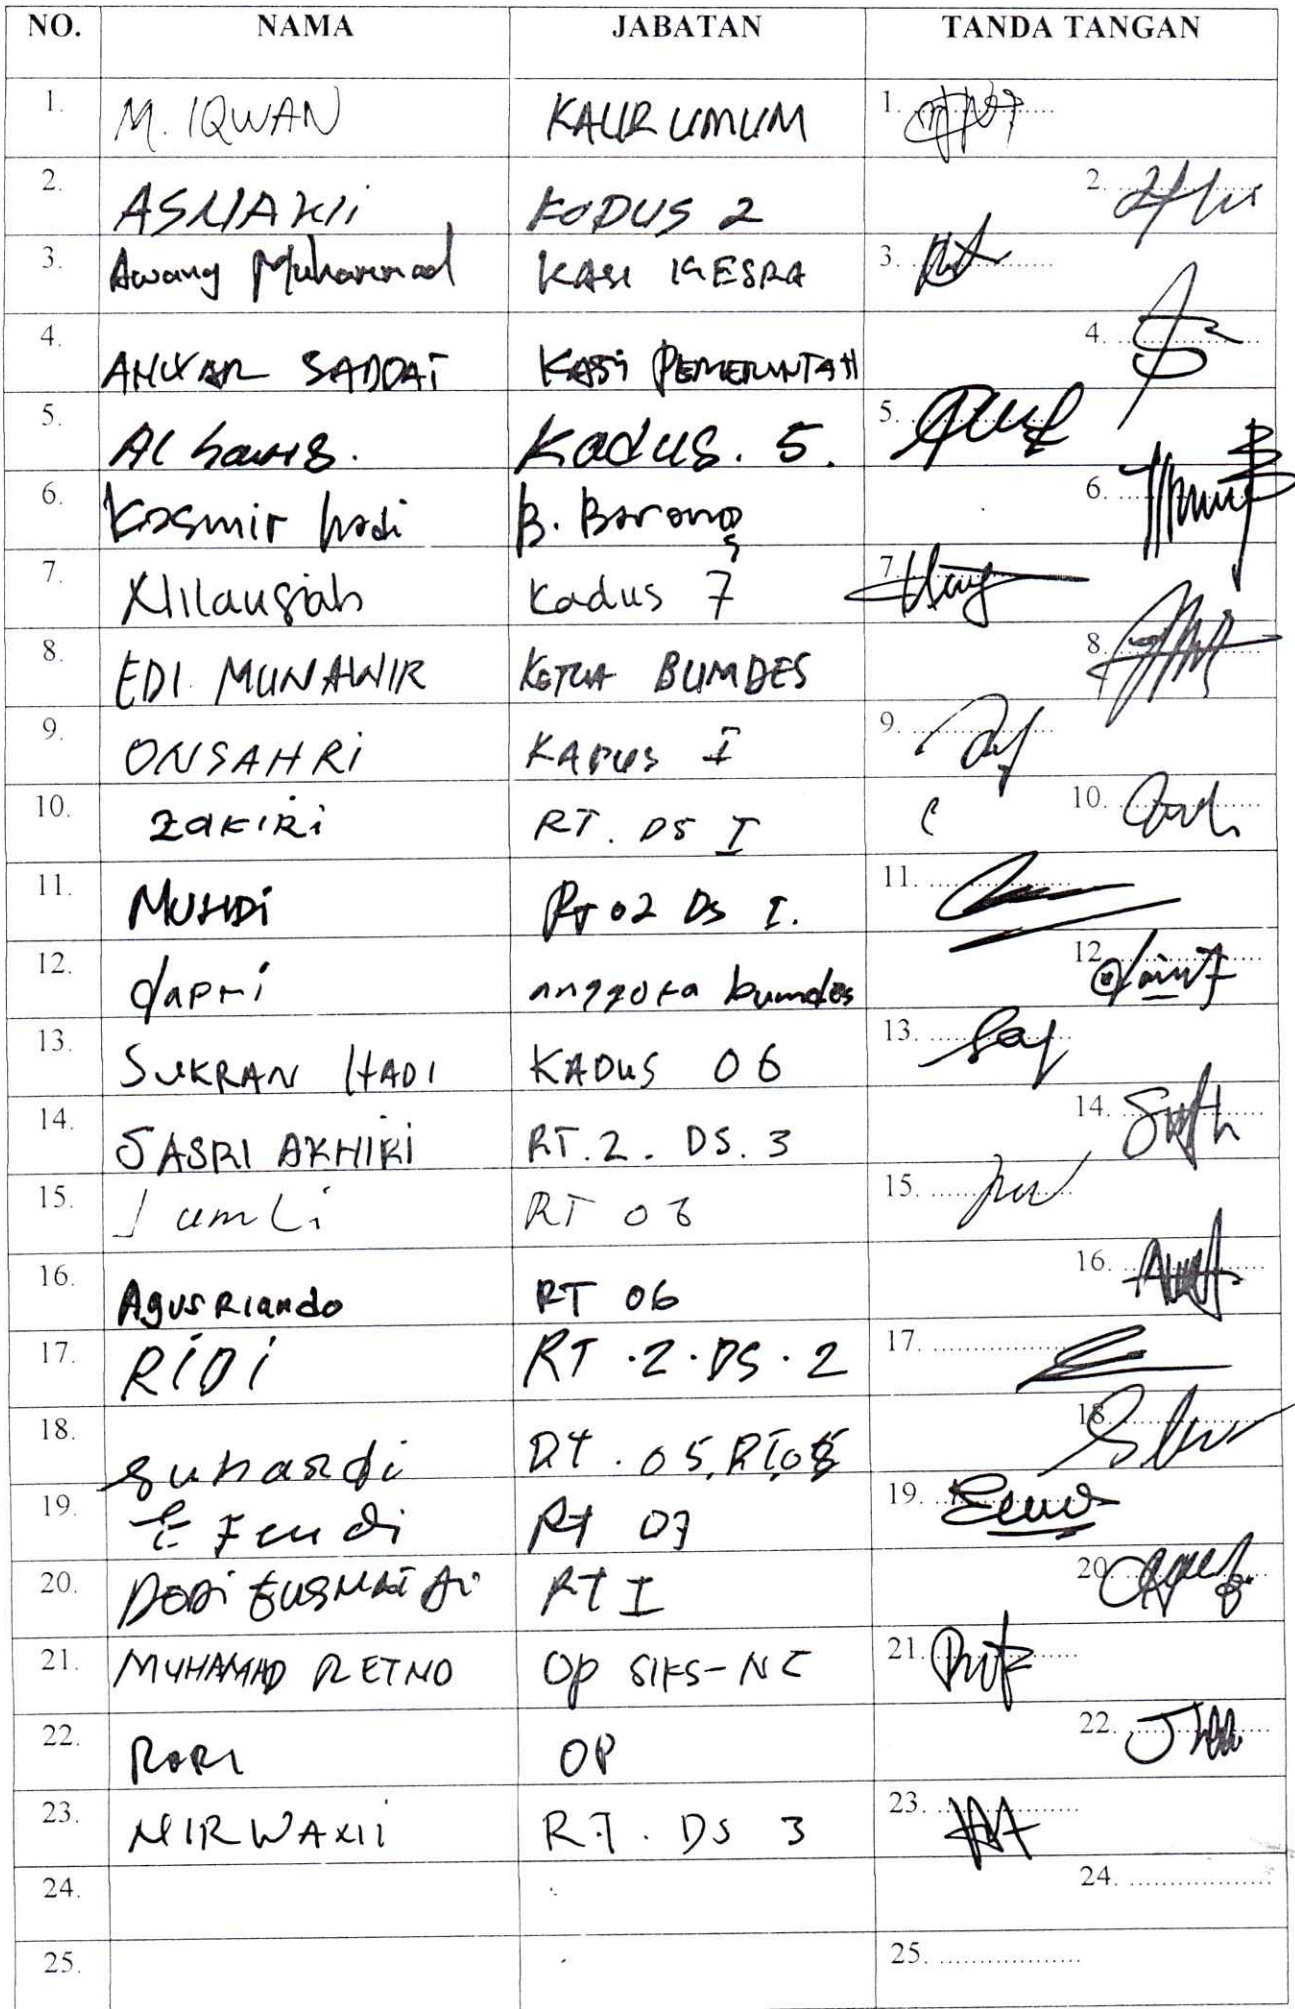 NO. NAMA JABATAN TANDA TANGAN
1. M. IQWAN KAUR UMUM 1.
2. ASMAKII KODUS 2 2.
3. Awang Muhammad KASI KESRA 3.
4. ANWAR SADDAT KASI PEMERINTAH 4.
5. Al Kadus. 5. 5.
6. Kasmir hadi B. 6.
7. Kadus 7 7.
8. EDI MUNAWIR KETUA BUMDES 8.
9. ONSAHRI KADUS I 9.
10. ZAKIRI RT. DS I 10.
11. MUHDI RT 02 DS I. 11.
12. dapri anggota bumdes 12.
13. SUKRAN HADI KADUS 06 13.
14. JASRI AKHIRI RT.2. DS.3 14.
15. Jumli RT 15.
16. Agus Riando RT 06 16.
17. RIDI RT.2.DS.2 17.
18. suhardi 18.
19. Efendi RT 07 19.
20. DODI RT I 20.
21. MUHAMAD RETNO OP SIKS-NG 21.
22. OP 22.
23. MIRWAXII RT. DS 3 23.
24. 24.
25. 25.